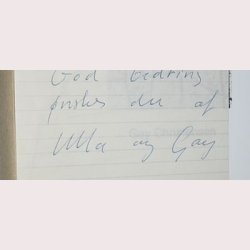 God bedring
ønskes du af
Ulla og Gay